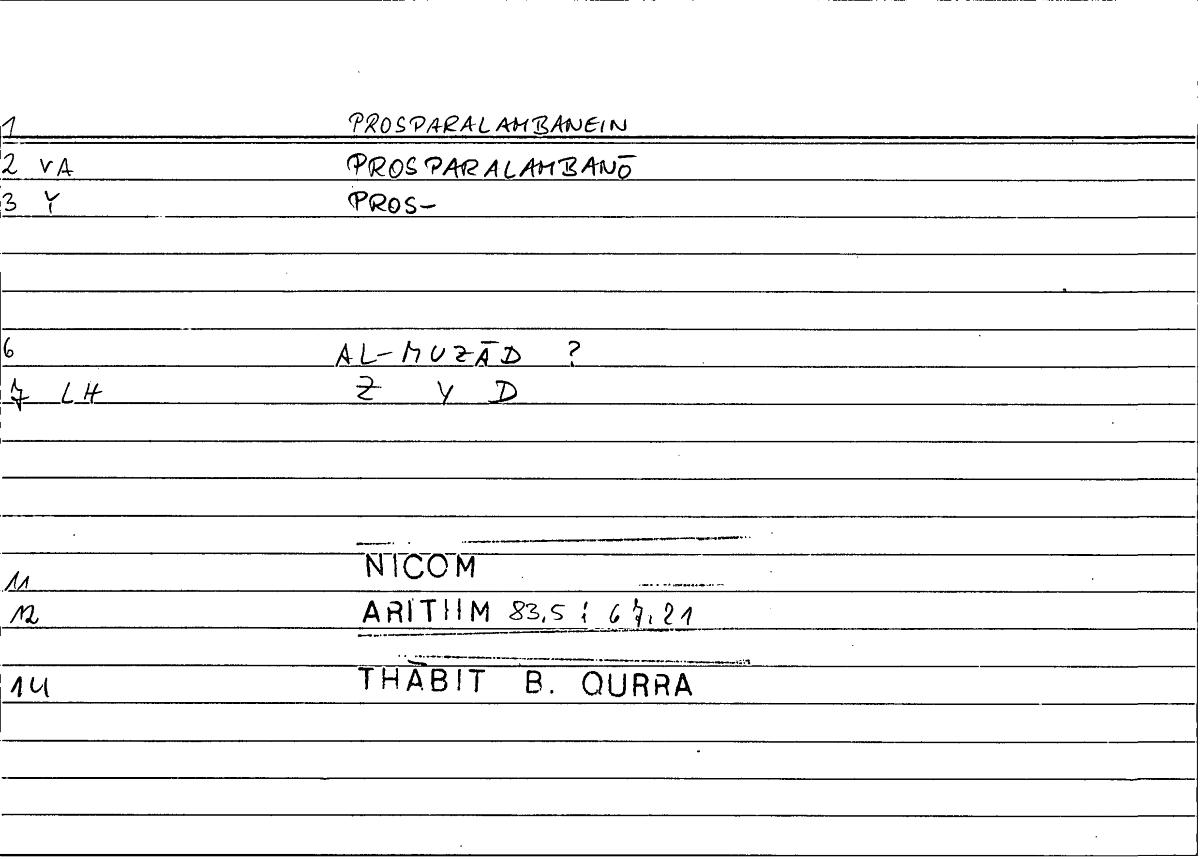 1 PROSPARALAMBANEIN
2 VA PROSPARALAMBANŌ
3 Y PROS-
6 AL-MUZĀD ?
7 LH Z Y D
11 NICOM
12 ARITHM 83,5 ; 67,21
14 THĀBIT B. QURRA